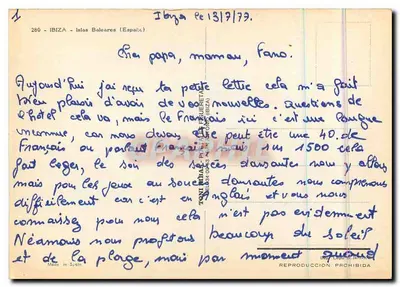 1
Ibiza le 13/7/77.
280 - IBIZA - Islas Baleares (España)
Cher papa, maman, Fano!
Aujourd'hui j'ai reçu ta petite lettre cela m'a fait
bien plaisir d'avoir de vos nouvelles. Questions de
l'hôtel cela va, mais le Français ici c'est une langue
inconnue, car nous devons être peut être une 40 de
Français ou parlant français sur 1500 cela
fait léger, le soir de soirées dansantes nous y allons
mais pour les jeux au soirées dansantes nous comprenons
difficilement car c'est en anglais et vous nous
connaissez pour nous cela n'est pas évidemment
Néamoins nous profitons beaucoup du soleil
et de la plage, mais par moment quand
Made in Spain
REPRODUCCION PROHIBIDA